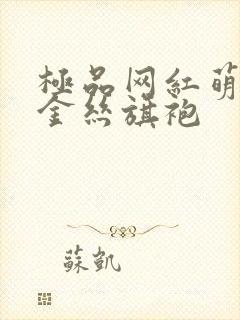 極品网紅萌
金丝旗袍
蘇凱